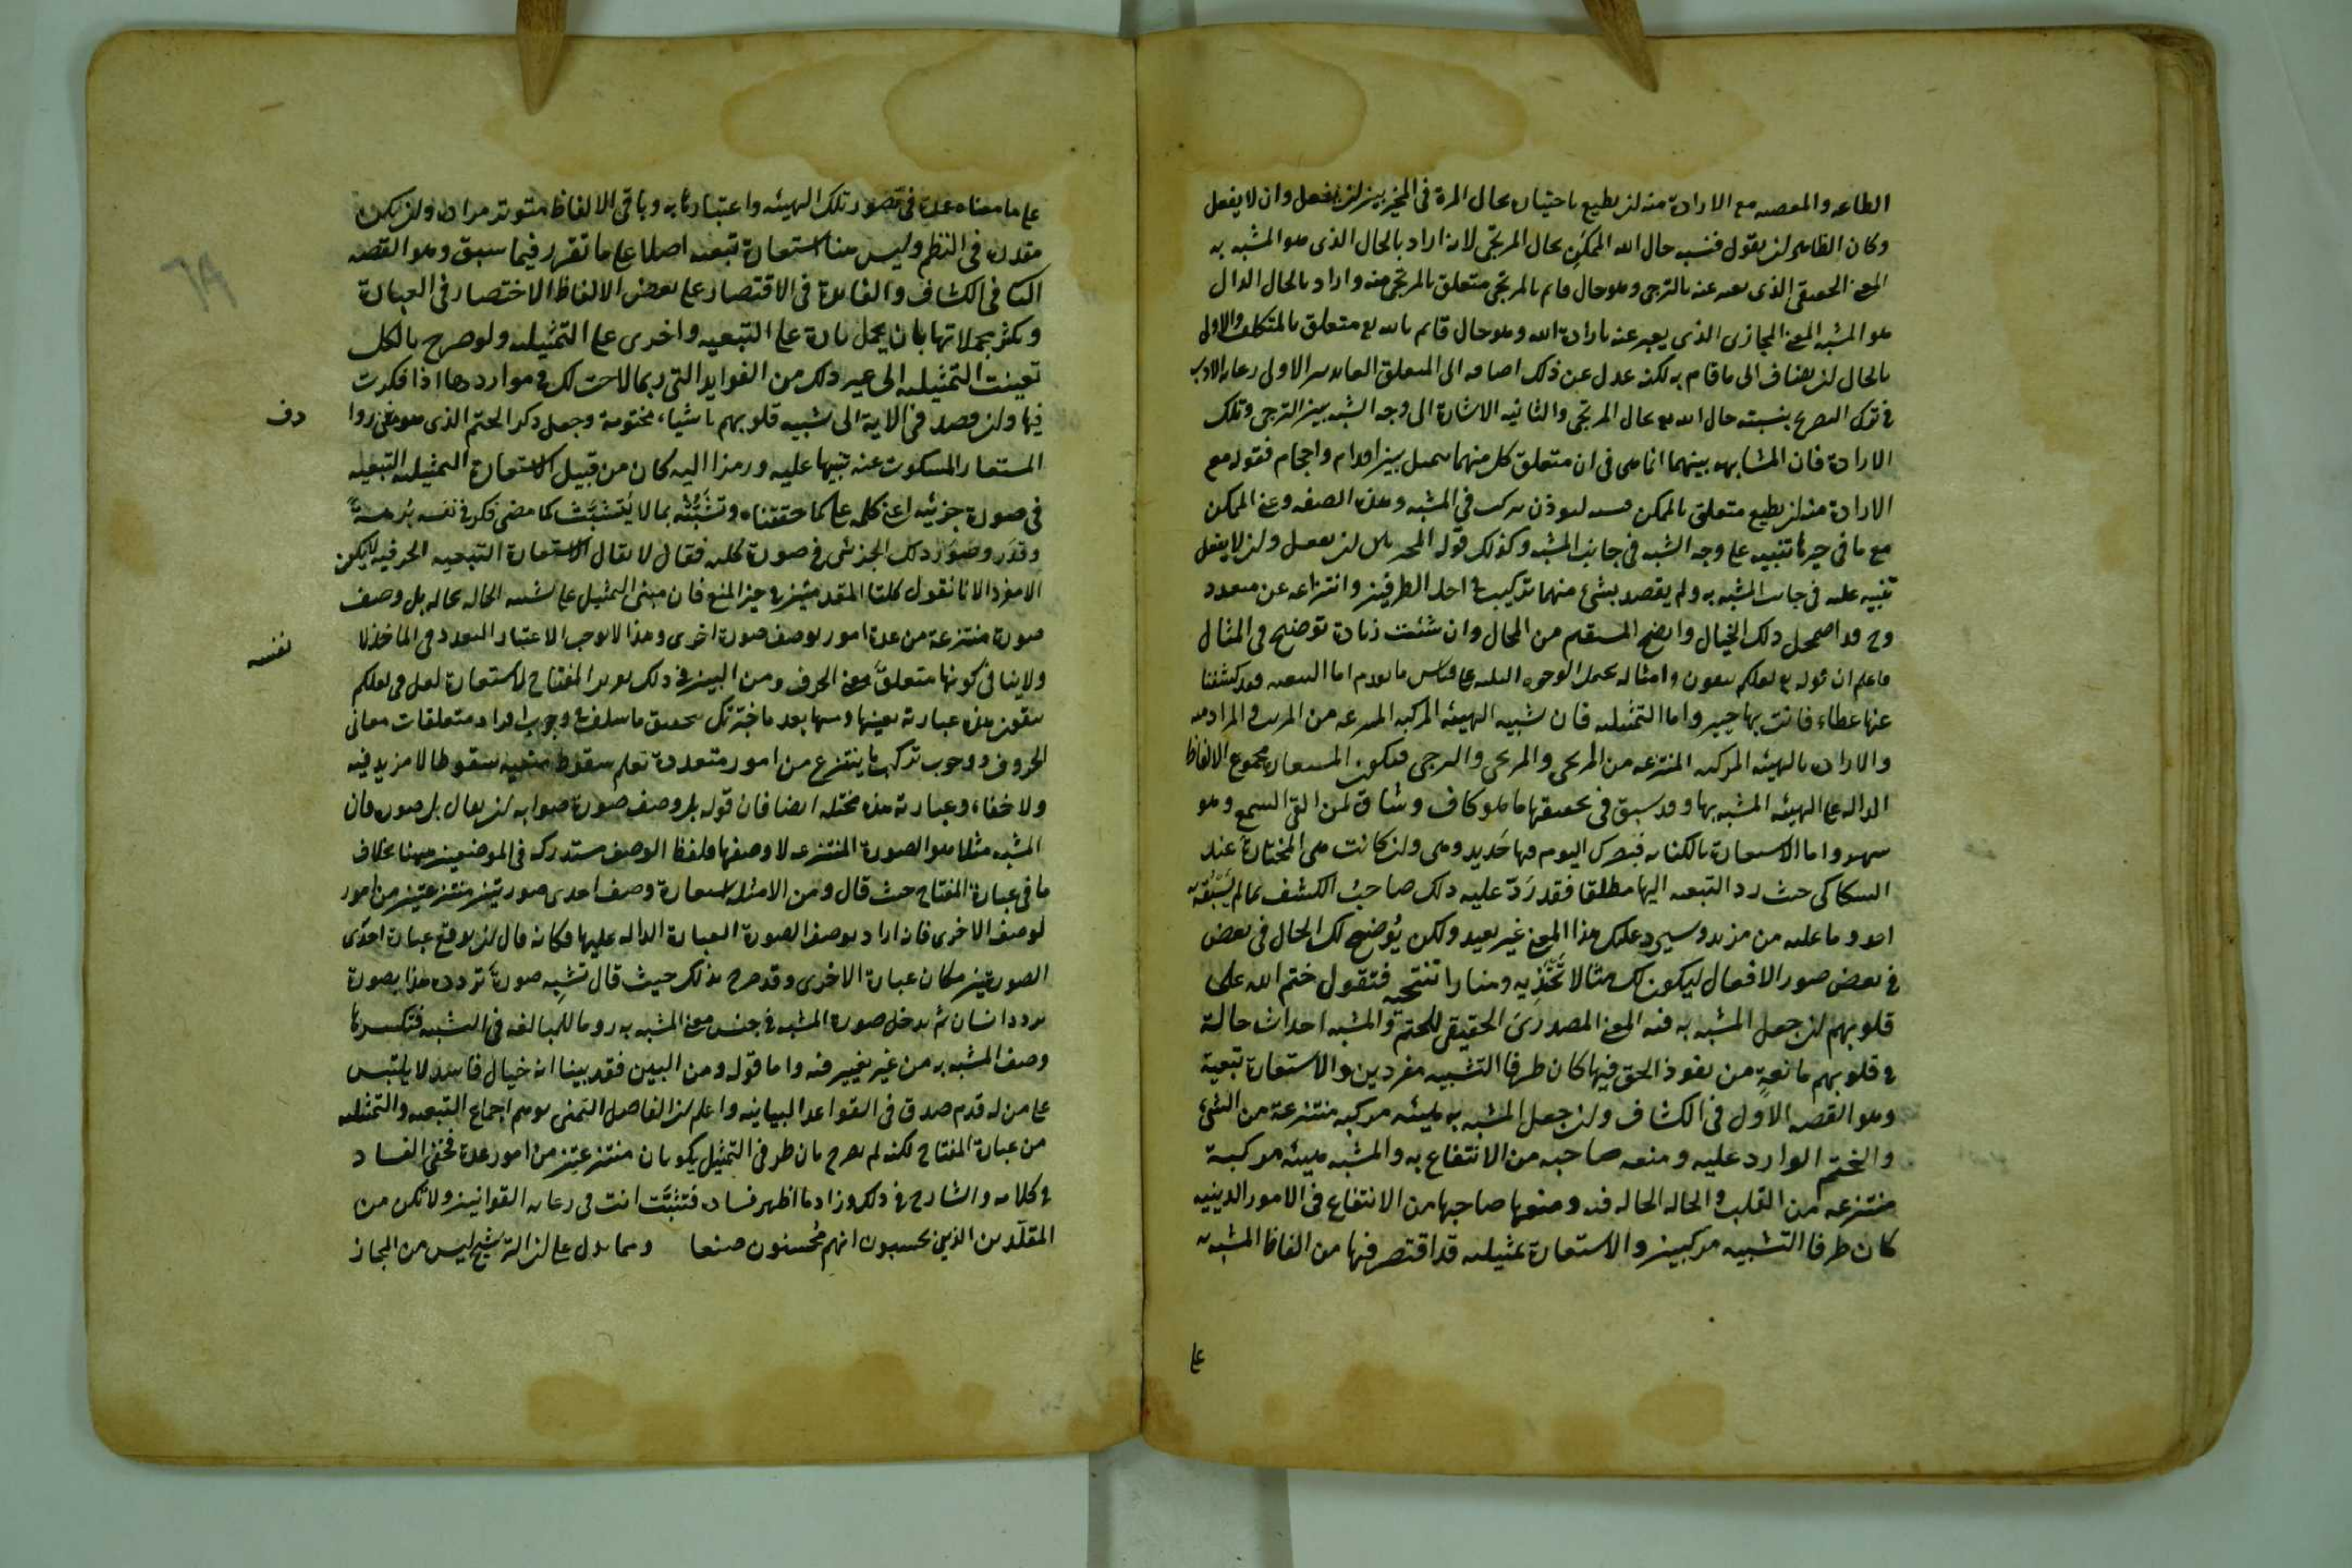 الطاعه والمعصيه مع الارادة منه ان يطيع باختياره بحال المرة في المخير بين ان يفعل وان لا يفعل
وكان الظاهر ان يقول فشبه حال الله الممكن بحال المرتجى لانه اراد بالحال الذى هو المشبه به
المعنى الحقيقى الذى يعبر عنه بالترجى وهو حال قايم بالمرتجى متعلق بالمرتجى منه واراد بالحال الدال
هو المشبه المعنى المجازى الذى يعبر عنه بارادة الله وهو حال قايم بالله تع متعلق بالمتكلف والاولى
بالحال ان يضاف الى ما قام به لكنه عدل عن ذلك اضافه الى المتعلق لفائدتين الاولى رعاية الادب
في ترك التصريح بنسبته حال الله تع بحال المرتجى والثانيه الاشارة الى وجه الشبه بين الترجى وتلك
الارادة فان المشابهه بينهما انما هى فى ان متعلق كل منهما يتميل بين اقدام واحجام فقوله مع
الارادة منه ان يطيع متعلق بالممكن فيه ليوذن بتركب في المشبه وهذه الصفه وعن الممكن
مع ما فى حيزها تنبيه على وجه الشبه فى جانب المشبه وكذلك قوله المخير بين ان يفعل وان لا يفعل
تنبيه عليه فى جانب المشبه به ولم يقصد بشئ منهما تركيب في احد الطرفين وانتزاعه عن متعدد
وح قد اضمحل ذلك الخيال واتضح المستقيم من المحال وان شئت زيادة توضيح فى المثال
فاعلم ان قوله تع لعلكم تتقون وامثاله يحتمل الوجوه الثلثه على قياس ما تقدم اما التبعيه فقد كشفنا
عنها غطاء فانت بها خبير واما التمثيليه فان تشبيه الهيئه المركبه المنتزعه من المريد والمراد منه
والارادة بالهيئه المركبه المنتزعه من المرتجى والمرتجى والترجى فيكون المستعار مجموع الالفاظ
الداله على الهيئه المشبه بها وقد سبق فى تحقيقها ما هو كاف وشاف لمن القى السمع وهو
شهيد واما الاستعارة بالكنايه فبصرك اليوم فيها حديد وهى وان كانت هى المختارة عند
السكاكى حيث رد التبعيه اليها مطلقا فقد رد عليه ذلك صاحب الكشف بما لم يسبقه
احد وما عليه من مزيد وسيرد عليك هذا المعنى غير بعيد ولكن يوضح لك الحال فى بعض
في بعض صور الافعال ليكون لك مثالا تحتذيه ومنارا تنتحيه فتقول ختم الله على
قلوبهم ان جعل المشبه به فيه المعنى المصدرى الحقيقى للختم والمشبه احداث حالة
في قلوبهم مانعة من نفوذ الحق فيها كان طرفا التشبيه مفردين والاستعارة تبعية
وهو القصد الاول فى الكشاف وان جعل المشبه به هيئه مركبه منتزعة من الشئ
والختم الوارد عليه ومنعه صاحبه من الانتفاع به والمشبه هيئه مركبة
منتزعه من القلب والحاله الحاله فيه ومنعها صاحبها من الانتفاع فى الامور الدينيه
كان طرفا التشبيه مركبين والاستعارة تمثيليه قد اقتصر فيها من الفاظ المشبه به
على
على ما معناه عمدة فى تصور تلك الهيئه واعتبارها به وباقى الالفاظ منوية مراده وان لم يكن
مقدره فى النظم وليس هنا استعارة تبعيه اصلا على ما تقرر فيما سبق وهو القصد
الثانى فى الكشاف والفايدة فى الاقتصار على بعض الالفاظ الاختصار فى العبارة
وتكثير محملاتها بان يحمل تارة على التبعيه واخرى على التمثيليه ولو صرح بالكل
تعينت التمثيليه الى غير ذلك من الفوايد التى ربما لاحت لك فى مواردها اذا فكرت
فيها وان قصد فى الاية الى تشبيه قلوبهم باشياء مختومة وجعل ذكر الختم الذى هو من روا
دف
المستعار المسكوت عنه تنبيها عليه ورمزا اليه كان من قبيل الاستعارة التمثيليه التبعيه
فى صورة جزئيه اعنى كلمه على كما حققناه وتشبثه بما لا يتشبث كما مضى فكر فى نفسه برهة
وقدر وصور ذلك الجزئى فى صورة كليه فقال لا يقال الاستعارة التبعيه الحرفيه لا يكون
الا مفردا لانا نقول كلتا المقدمتين فى حيز المنع فان مبنى التمثيل على تشبيه الحاله بحاله بل وصف
صورة منتزعة من عدة امور بوصف صورة اخرى وهذا لا يوجب الا اعتبار التعدد فى الماخذ لا
نفسه
ولا ينافى كونها متعلق معنى الحرف ومن البين فى ذلك تقرير المفتاح لاستعارة لعل فى لعلكم
تتقون هذه عبارته بعينها وبها بعد ما خبرتك بتحقيق ما سلف في وجوب افراد متعلقات معانى
الحروف ووجوب تركب ما ينتزع من امور متعددة تعلم سقوط منعيه سقوطا لا مزيد فيه
ولا خفاء وعبارته هذه مختله ايضا فان قوله بل وصف صورة صوابه ان يقال بل صورة فان
المشبه مثلا هو الصورة المنتزعه لا وصفها فلفظ الوصف مستدرك فى الموضعين هيهنا بخلاف
ما فى عبارة المفتاح حيث قال ومن الامثله استعارة وصف احدى صورتين منتزعتين من امور
لوصف الاخرى فانه اراد بوصف الصورة العبارة الداله عليها فكانه قال ان يوقع عبارة احدى
الصورتين مكان عبارة الاخرى وقد صرح بذلك حيث قال تشبيه صورة تردده هذا بصورة
تردد انسان ثم يدخل صورة المشبه فى جنس صورة المشبه به روما للمبالغه فى التشبيه فتكسوها
وصف المشبه به من غير تغيير فيه واما قوله ومن البين فقد بينا انه خيال فاسد لا يلتبس
على من له قدم صدق فى القواعد البيانيه واعلم ان الفاضل اليمنى توهم اجتماع التبعيه والتمثيليه
من عبارة المفتاح لكنه لم يصرح بان طرفى التمثيل يكونان منتزعتين من امور عدة فخفى الفساد
في كلامه والشارح فى ذلك وزاد ما اظهر فساده فتثبت انت فى رعاية القوانين ولا تكن من
المقلدين الذين يحسبون انهم محسنون صنعا ومما يدل على ان الترشيح ليس من المجاز
٦٩